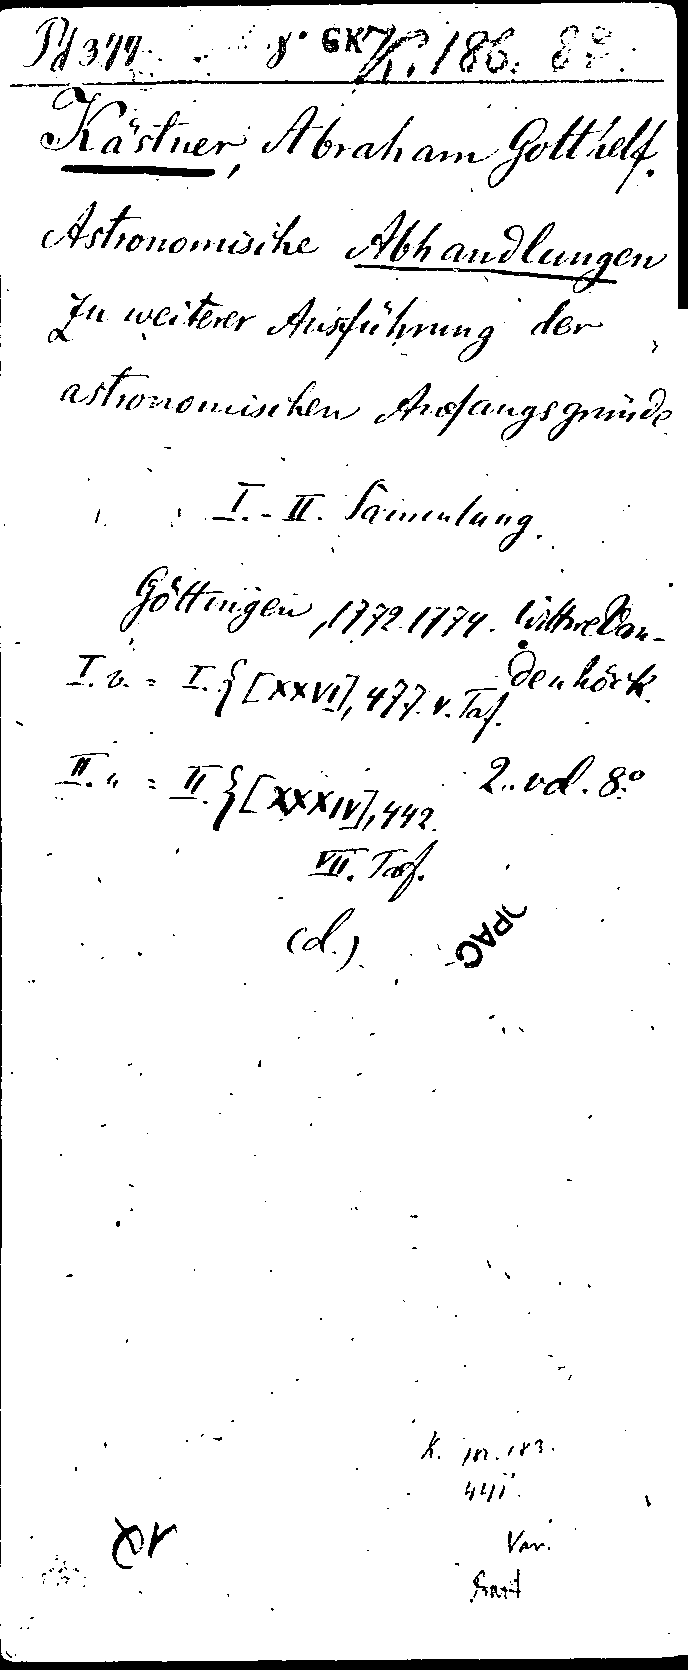 Pd 377. 8° GK7 K. 186. 82.
Kästner, Abraham Gotthelf.
Astronomische Abhandlungen
zu weiterer Ausführung der
astronomischen Anfangsgründe
I.-II. Sammlung.
Göttingen, 1772.1774. Wittwe Van-
denhöck.
I. v. = I. {[XXVI], 477. V. Taf.
II. " = II. {[XXXIV], 442. 2. vol. 8.°
VII. Taf.
(d.)
OPAC
K. 182.183.
Var.